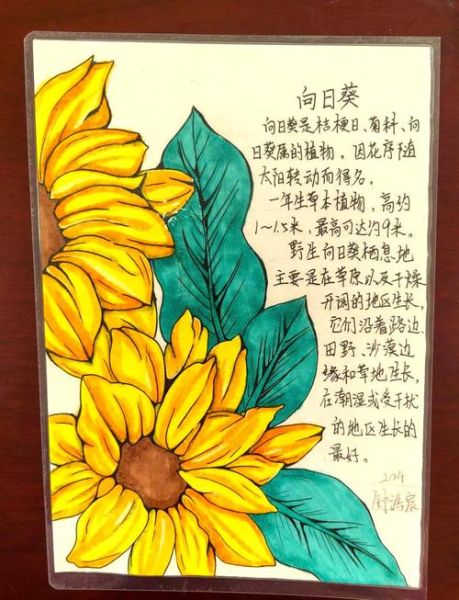 向日葵
向日葵是桔梗日、菊科、向
日葵属的植物。因花序随
太阳转动而得名。
一年生草本植物，高约
1～1.5米，最高可达约9米。
野生向日葵栖息地
主要是在草原以及干燥
开阔的地区生长，
它们沿着路边、
田野、沙漠边
缘和草地生长，
在潮湿或受干扰
的地区生长的
最好。
204